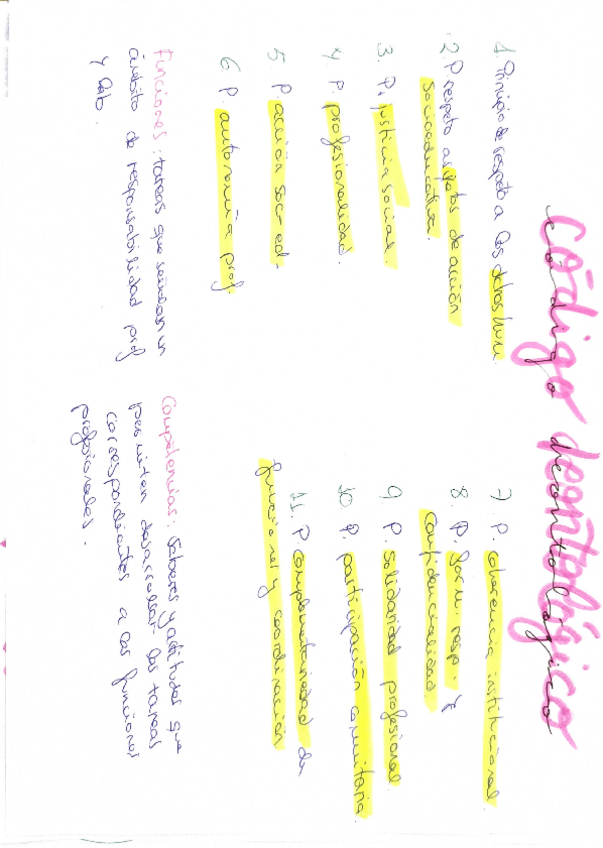 código deontológico
1. Principio de respeto a los dchos hum.
2. P. respeto sujetos de acción
socioeducativa.
3. P. justicia social
4 P. profesionalidad.
5 P. acción soc-ed.
6 P. autonomía prof.
Funciones: tareas que señalan un
ámbito de responsabilidad prof
y lab.
7. P. coherencia institucional.
8. P. y
confidencialidad
9 P. solidaridad profesional.
10 P. participación comunitaria.
11. P. complementariedad de
funciones y coordinación
Competencias: saberes y aptitudes que
permiten desarrollar las tareas
correspondientes a las funciones
profesionales.